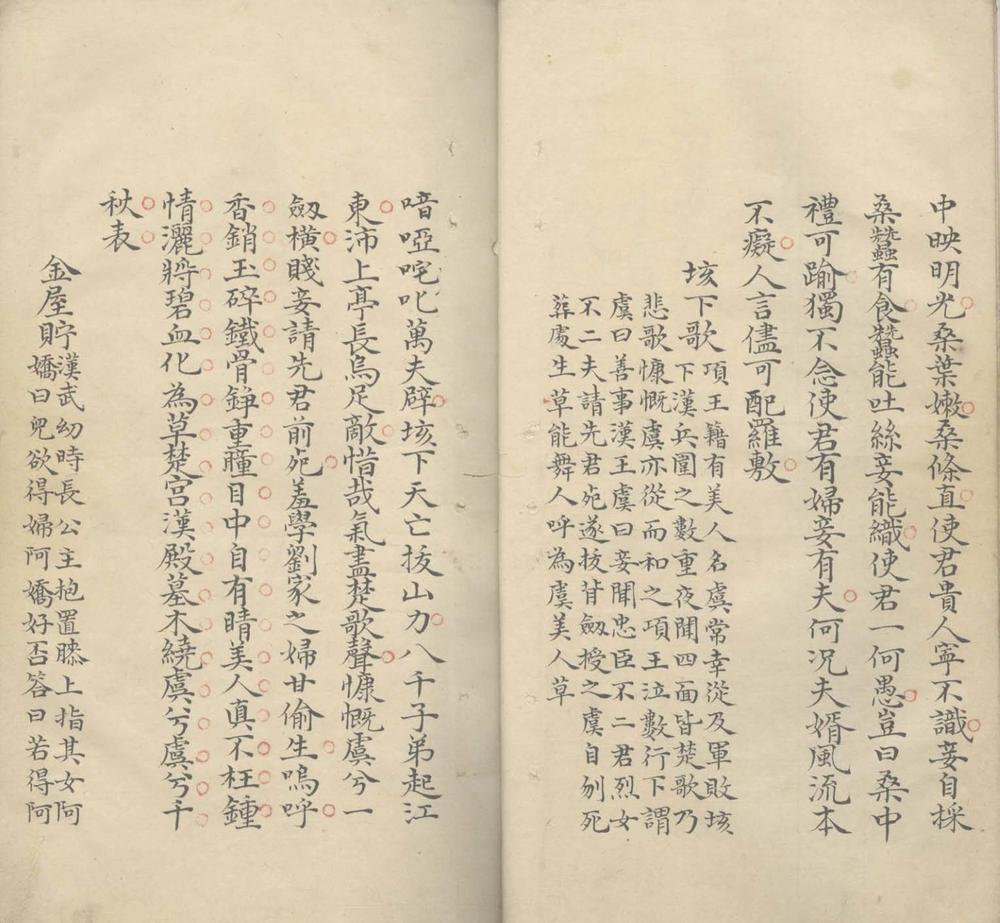 中映明光桑葉嫩桑條直使君貴人寧不識妾自採
桑蠶有食蠶能吐絲妾能織使君一何愚豈曰桑中
禮可踰獨不念使君有婦妾有夫何況夫婿風流本
不癡人言儘可配羅敷
垓下歌項王籍有美人名虞常幸從及軍敗垓
下漢兵圍之數重夜聞四面皆楚歌乃
悲歌慷慨虞亦從而和之項王泣數行下謂
虞曰善事漢王虞曰妾聞忠臣不二君烈女
不二夫請先君死遂拔背劒授之虞自刎死
葬處生草能舞人呼為虞美人草
喑啞咤叱萬夫辟垓下天亡拔山力八千子弟起江
東沛上亭長烏足敵惜哉氣盡楚歌聲慷慨虞兮一
劒橫賤妾請先君前死羞學劉家之婦甘偷生嗚呼
香銷玉碎鐵骨錚重瞳目中自有晴美人真不枉鍾
情灑將碧血化為草楚宫漢殿墓木繞虞兮虞兮千
秋表
金屋貯漢武幼時長公主抱置膝上指其女阿
嬌曰兒欲得婦阿嬌好否答曰若得阿